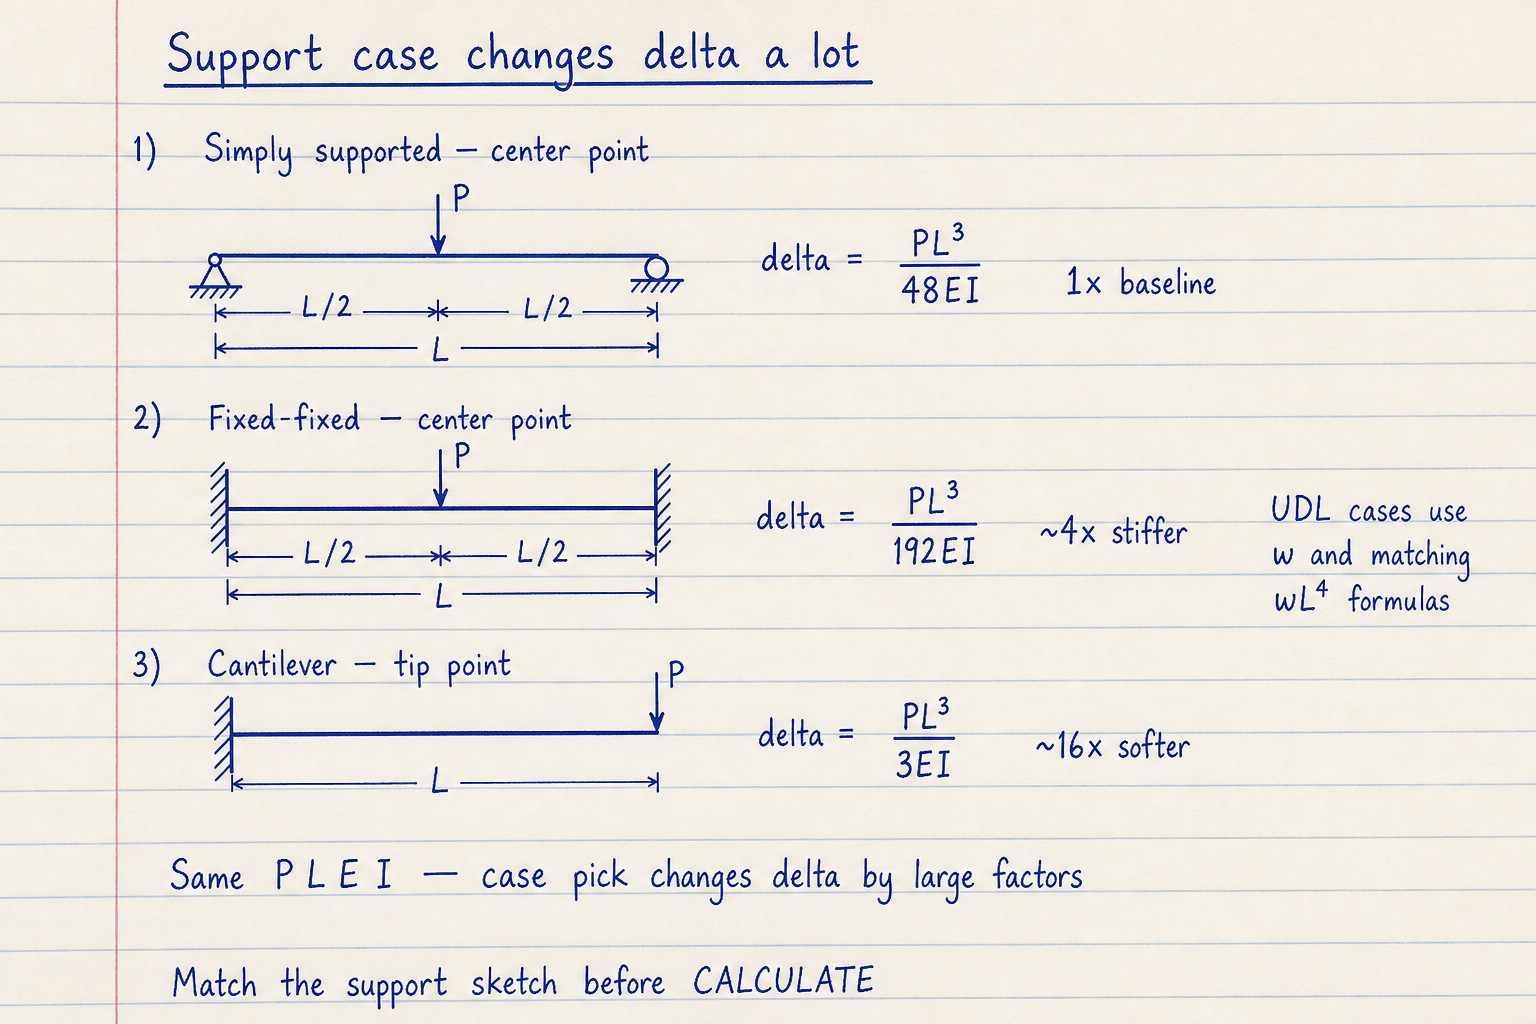 Support case changes delta a lot
1) Simply supported — center point
P
delta = PL³/48EI 1x baseline
L/2 L/2
L
2) Fixed-fixed — center point
P
delta = PL³/192EI ~4x stiffer
UDL cases use
w and matching
wL⁴ formulas
L/2 L/2
L
3) Cantilever — tip point
P
delta = PL³/3EI ~16x softer
L
Same P L E I — case pick changes delta by large factors
Match the support sketch before CALCULATE